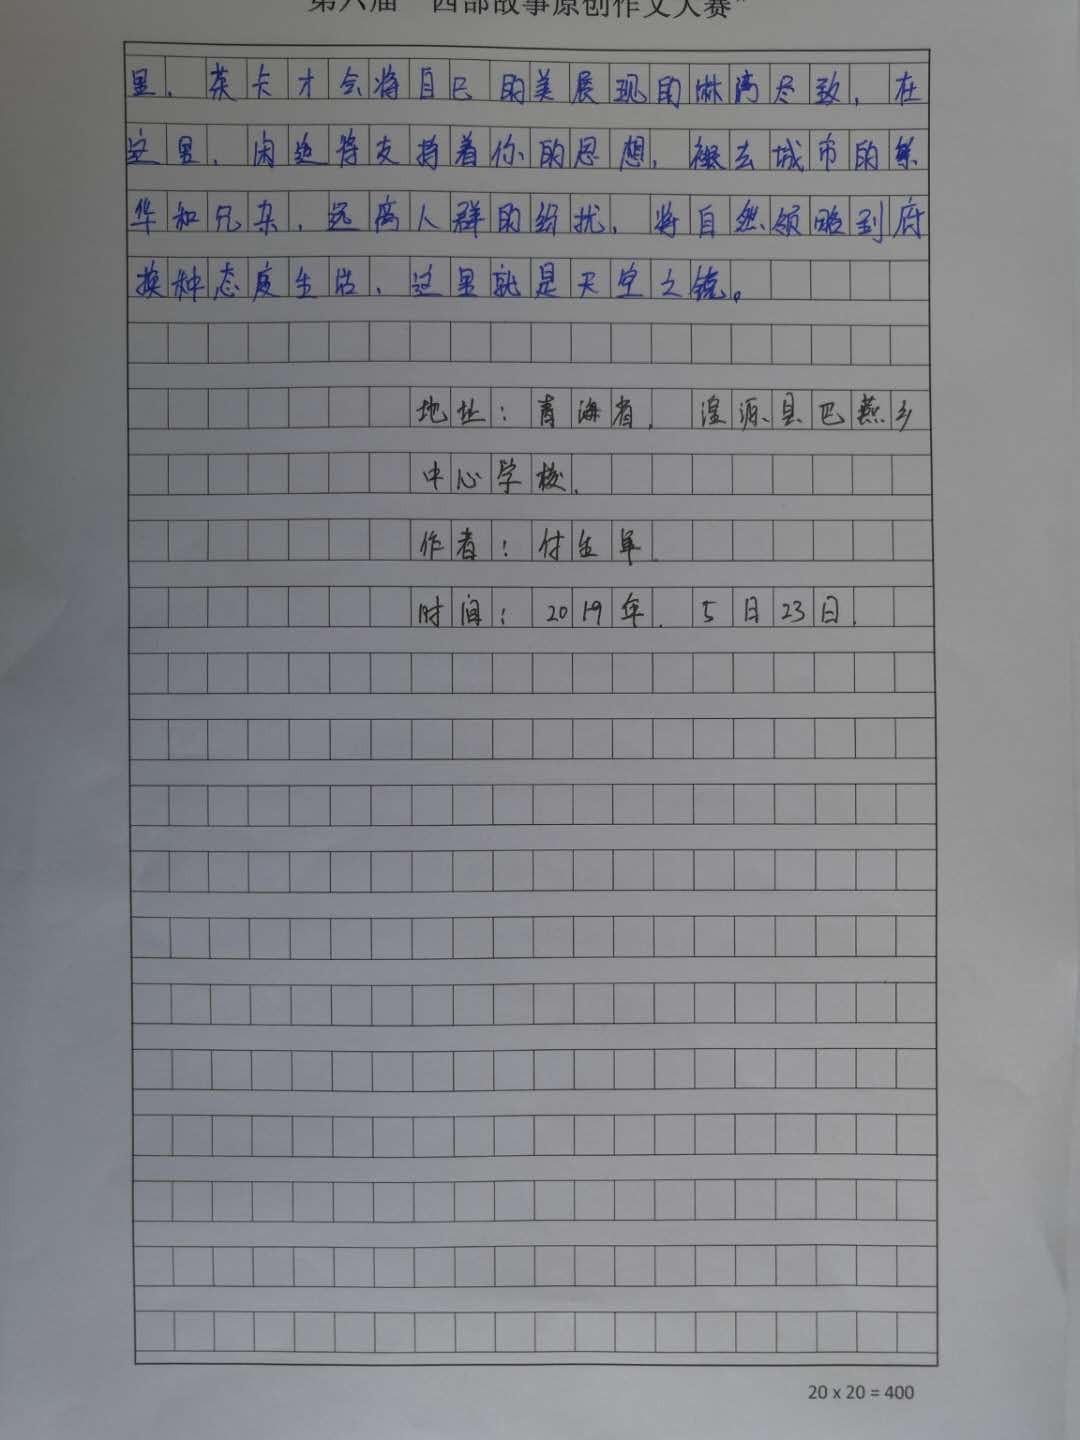 第六届“西部故事原创作文大赛”
里，茶卡才会将自己的美展现的淋漓尽致，在
这里，闲逸将支持着你的思想，褪去城市的繁
华和冗杂，远离人群的纷扰，将自然领略到府
换种态度生活，这里就是天空之镜。
地址：青海省，湟源县巴燕乡
中心学校，
作者：付生军
时间：2019年，5月23日，
20 x 20 = 400